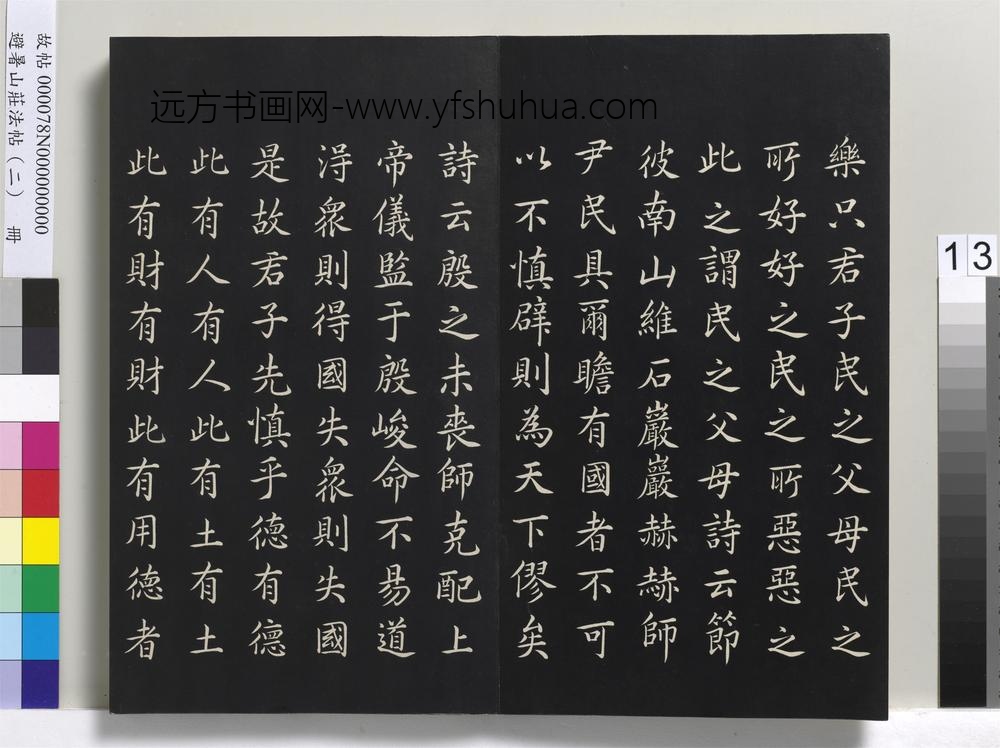 远方书画网-www.yfshuhua.com
故帖 000078N000000000
避暑山莊法帖(二) 冊
13
樂只君子民之父母民之
所好好之民之所惡惡之
此之謂民之父母詩云節
彼南山維石巖巖赫赫師
尹民具爾瞻有國者不可
以不慎辟則為天下僇矣
詩云殷之未喪師克配上
帝儀監于殷峻命不易道
淂衆則得國失衆則失國
是故君子先慎乎德有德
此有人有人此有土有土
此有財有財此有用德者